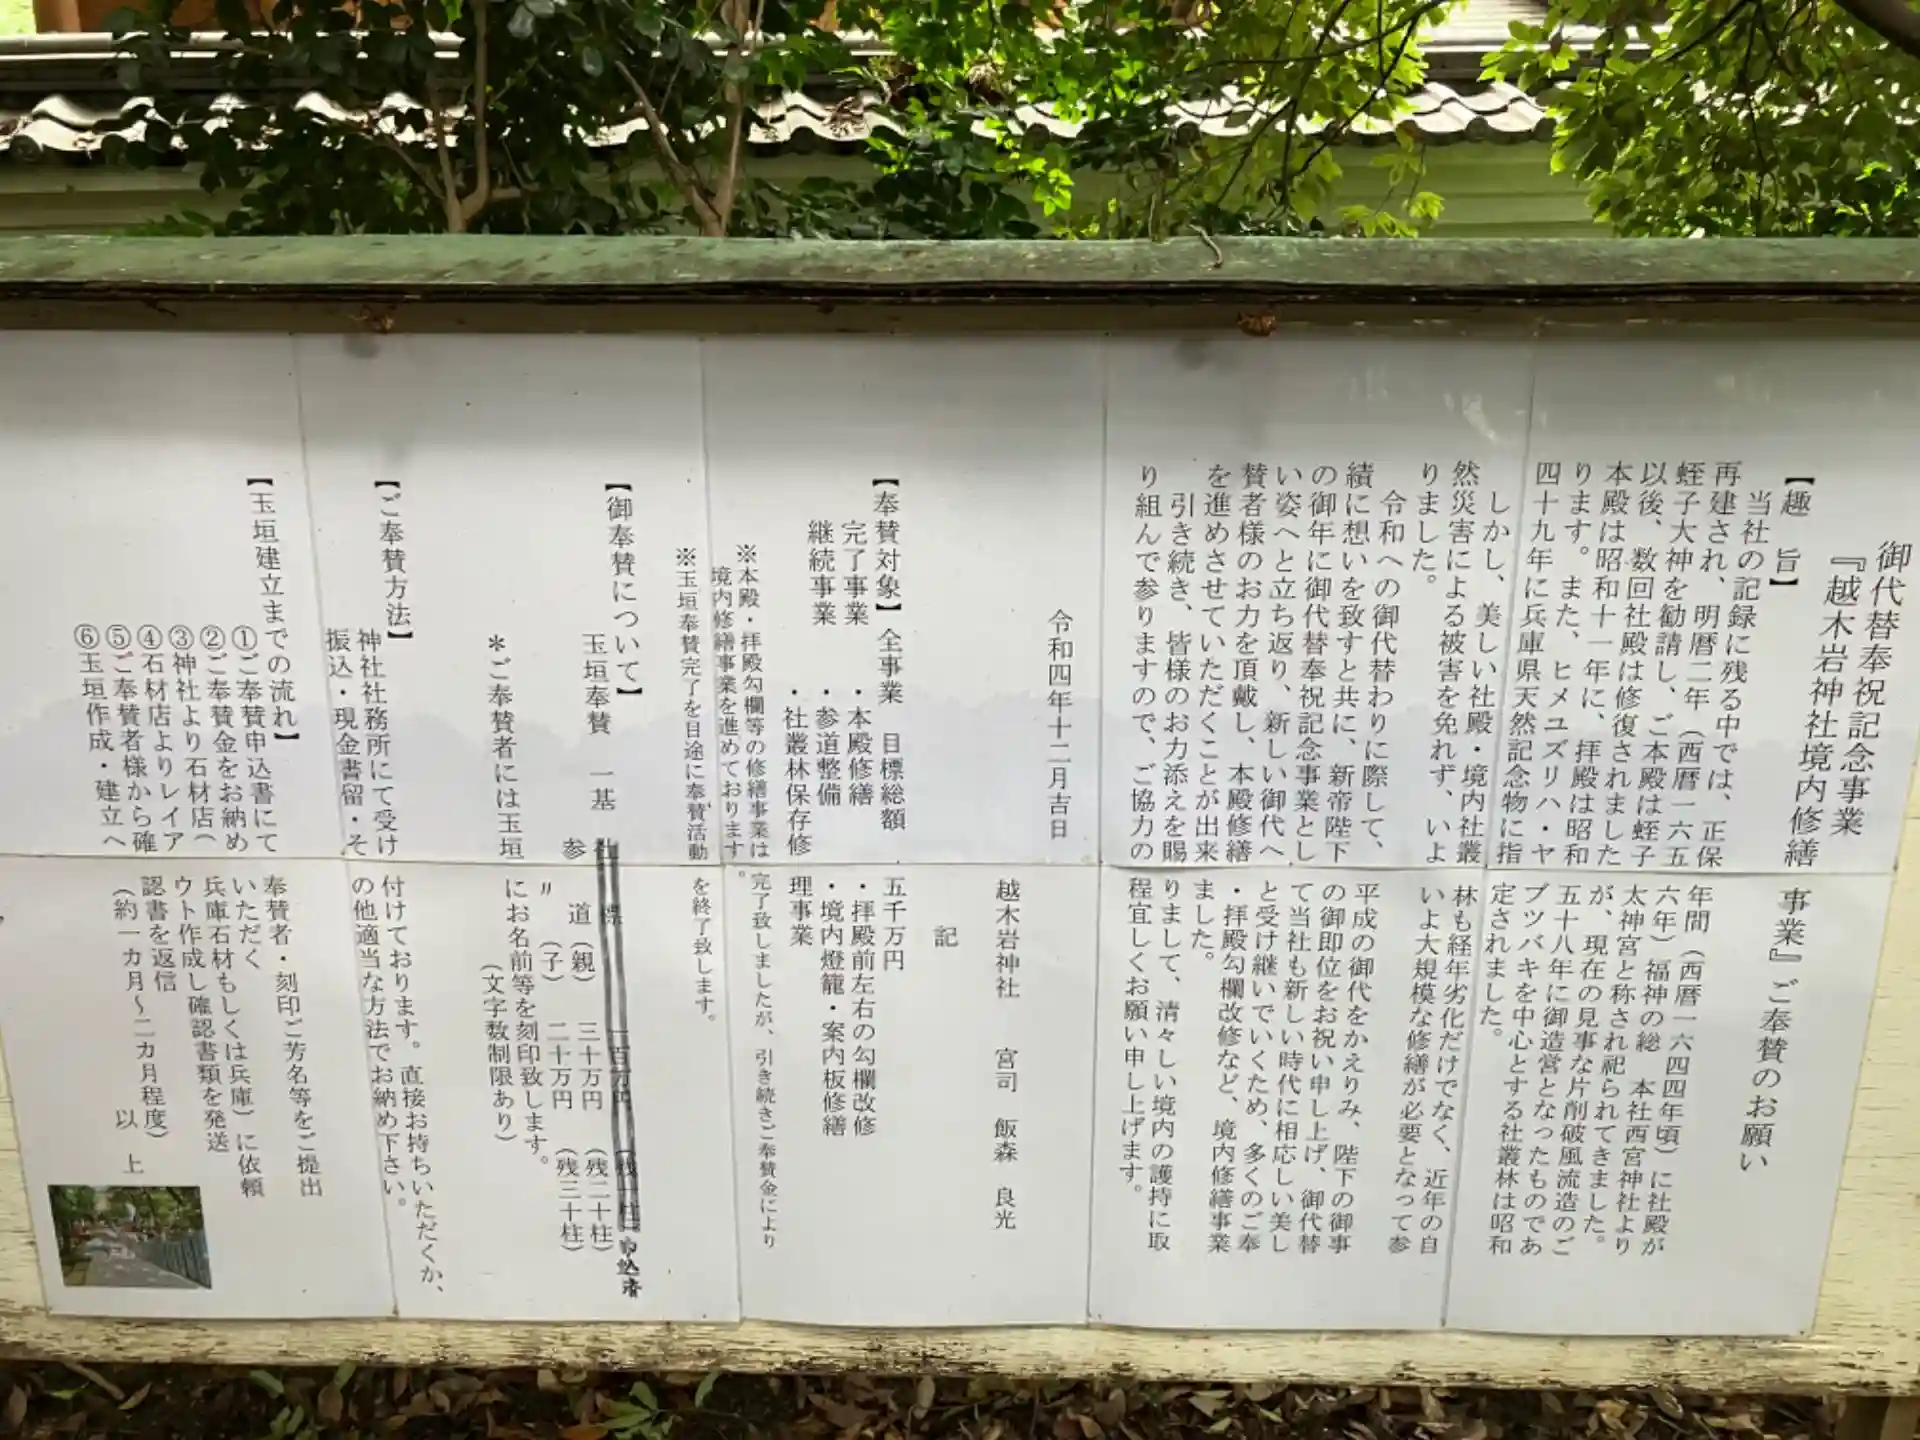 御代替奉祝記念事業
『越木岩神社境内修繕事業』ご奉賛のお願い
【趣　旨】
当社の記録に残る中では、正保年間（西暦一六四四年頃）に社殿が
再建され、明暦二年（西暦一六五六年）福神の総　本社西宮神社より
蛭子大神を勧請し、ご本殿は蛭子太神宮と称され祀られてきました。
以後、数回社殿は修復されましたが、現在の見事な片削破風流造のご
本殿は昭和十一年に、拝殿は昭和五十八年に御造営となったものであ
ります。また、ヒメユズリハ・ヤブツバキを中心とする社叢林は昭和
四十九年に兵庫県天然記念物に指定されました。
しかし、美しい社殿・境内社叢林も経年劣化だけでなく、近年の自
然災害による被害を免れず、いよいよ大規模な修繕が必要となって参
りました。
令和への御代替わりに際して、平成の御代をかえりみ、陛下の御事
績に想いを致すと共に、新帝陛下の御即位をお祝い申し上げ、御代替
の御年に御代替奉祝記念事業として当社も新しい時代に相応しい美し
い姿へと立ち返り、新しい御代へと受け継いでいくため、多くのご奉
賛者様のお力を頂戴し、本殿修繕・拝殿勾欄改修など、境内修繕事業
を進めさせていただくことが出来ました。
引き続き、皆様のお力添えを賜りまして、清々しい境内の護持に取
り組んで参りますので、ご協力の程宜しくお願い申し上げます。
令和四年十二月吉日
越木岩神社　宮司　飯森　良光
記
【奉賛対象】全事業　目標総額　五千万円
完了事業　・本殿修繕　・拝殿前左右の勾欄改修
継続事業　・参道整備　・境内燈籠・案内板修繕
・社叢林保存修理事業
※本殿・拝殿勾欄等の修繕事業は完了致しましたが、引き続きご奉賛金により
境内修繕事業を進めております。
※玉垣奉賛完了を目途に奉賛活動を終了致します。
【御奉賛について】
玉垣奉賛　一基　社　標　一百万円　（残一柱）申込済
参　道（親）　三十万円　（残二十柱）
〃　（子）　二十万円　（残三十柱）
＊ご奉賛者には玉垣にお名前等を刻印致します。
（文字数制限あり）
【ご奉賛方法】
神社社務所にて受け付けております。直接お持ちいただくか、
振込・現金書留・その他適当な方法でお納め下さい。
【玉垣建立までの流れ】
①ご奉賛申込書にて奉賛者・刻印ご芳名等をご提出
②ご奉賛金をお納めいただく
③神社より石材店（兵庫石材もしくは兵庫）に依頼
④石材店よりレイアウト作成し確認書類を発送
⑤ご奉賛者様から確認書を返信
⑥玉垣作成・建立へ（約一カ月～二カ月程度）
以　上